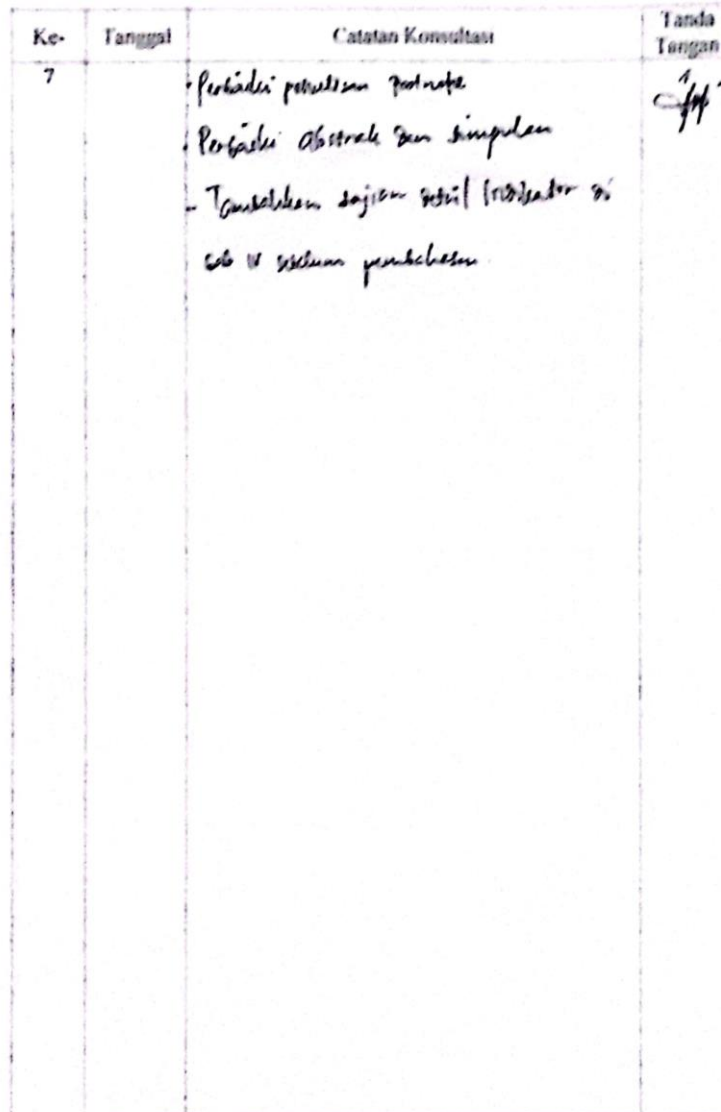 Ke- Tanggal Catatan Konsultasi Tanda Tangan
7
- Perbaiki penulisan footnote
- Perbaiki abstrak dan simpulan
- Tambahkan sajian detil indikator di
bab IV sebelum pembahasan